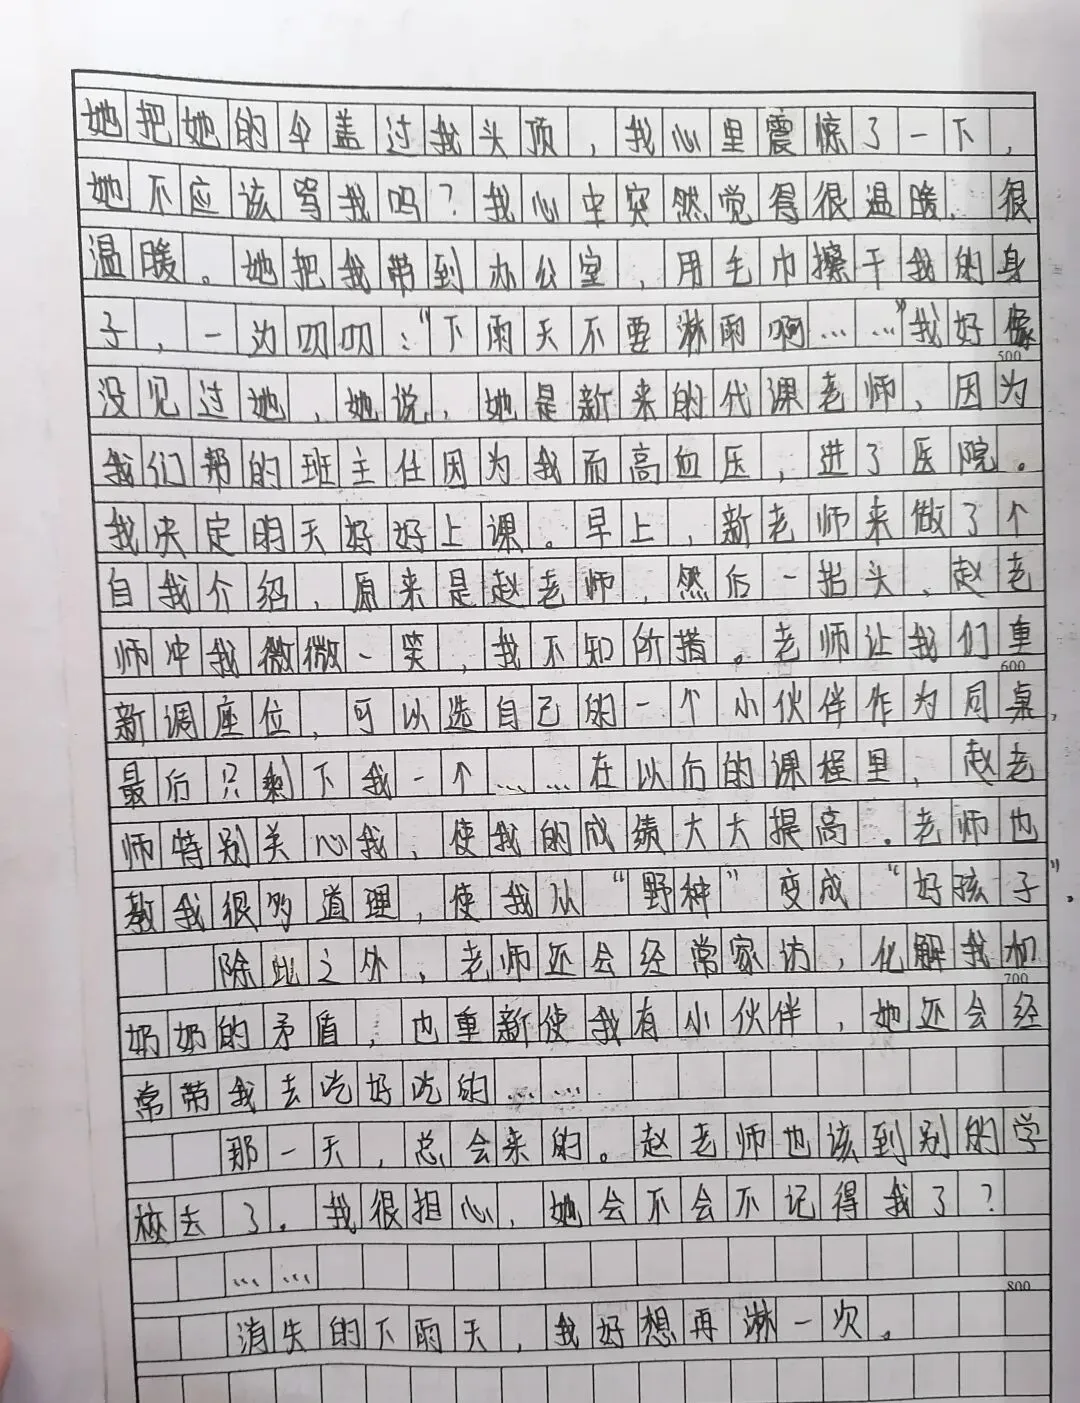 她把她的伞盖过我头顶，我心里震惊了一下，
她不应该骂我吗？我心中突然觉得很温暖，很
温暖。她把我带到办公室，用毛巾擦干我的身
子，一边叨叨：“下雨天不要淋雨啊……”我好像
500
没见过她，她说，她是新来的代课老师，因为
我们帮的班主任因为我而高血压，进了医院。
我决定明天好好上课。早上，新老师来做了个
自我介绍，原来是赵老师，然后一抬头，赵老
师冲我微微一笑，我不知所措。老师让我们重
600
新调座位，可以选自己的一个小伙伴作为同桌，
最后只剩下我一个……在以后的课程里，赵老
师特别关心我，使我的成绩大大提高。老师也
教我很多道理，使我从“野种”变成“好孩子”。
除此之外，老师还会经常家访，化解我和
700
奶奶的矛盾，也重新使我有小伙伴，她还会经
常带我去吃好吃的……
那一天，总会来的。赵老师也该到别的学
校去了。我很担心，她会不会不记得我了？
……
800
消失的下雨天，我好想再淋一次。